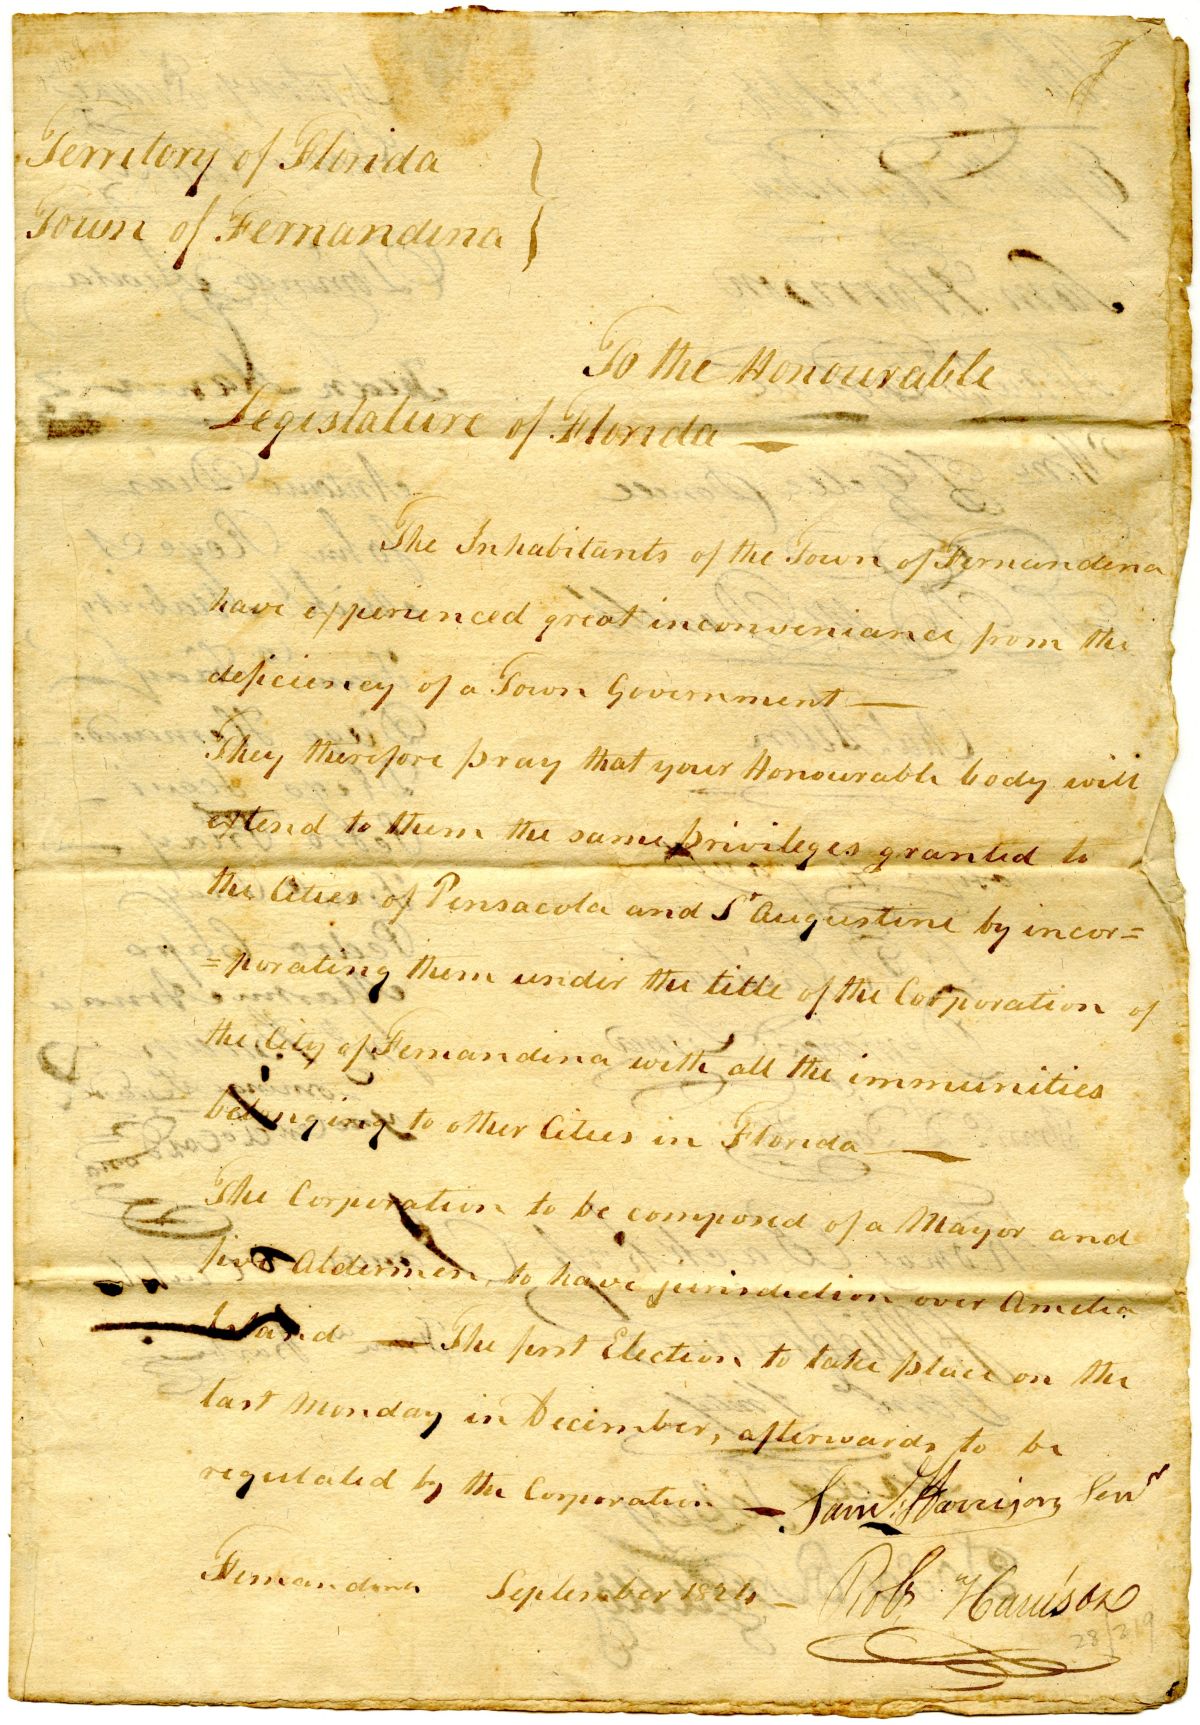 Territory of Florida
Town of Fernandina
To the Honourable
Legislature of Florida —
The Inhabitants of the Town of Fernandina
have experienced great inconveniance from the
deficiency of a Town Government —
They therefore pray that your Honourable body will
extend to them the same privileges granted to
the Cities of Pensacola and St Augustine by incor=
=porating them under the title of the Corporation of
the City of Fernandina with all the immunities
belonging to other Cities in Florida —
The Corporation to be composed of a Mayor and
five Aldermen, to have jurisdiction over Amelia
Island — The first Election to take place on the
last Monday in December, afterwards to be
regulated by the Corporation —
Saml. Harrison Senr
Fernandina September 1824 –
Robt Harrison
28/219